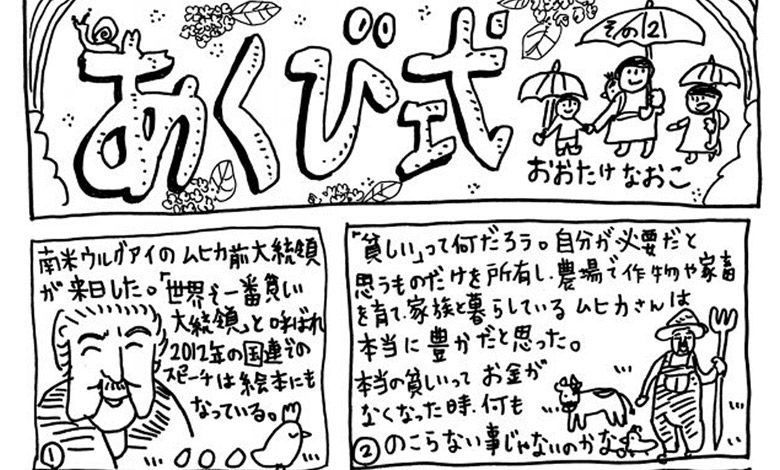 あくび式
その12
おおたけなおこ
南米ウルグアイのムヒカ前大統領
が来日した。「世界で一番貧しい
大統領」と呼ばれ
2012年の国連での
スピーチは絵本にも
なっている。
1
「貧しい」って何だろう。自分が必要だと
思うものだけを所有し、農場で作物や家畜
を育て、家族と暮らしているムヒカさんは
本当に豊かだと思った。
本当の貧しいって お金が
なくなった時、何も
のこらない事じゃないのかな
2